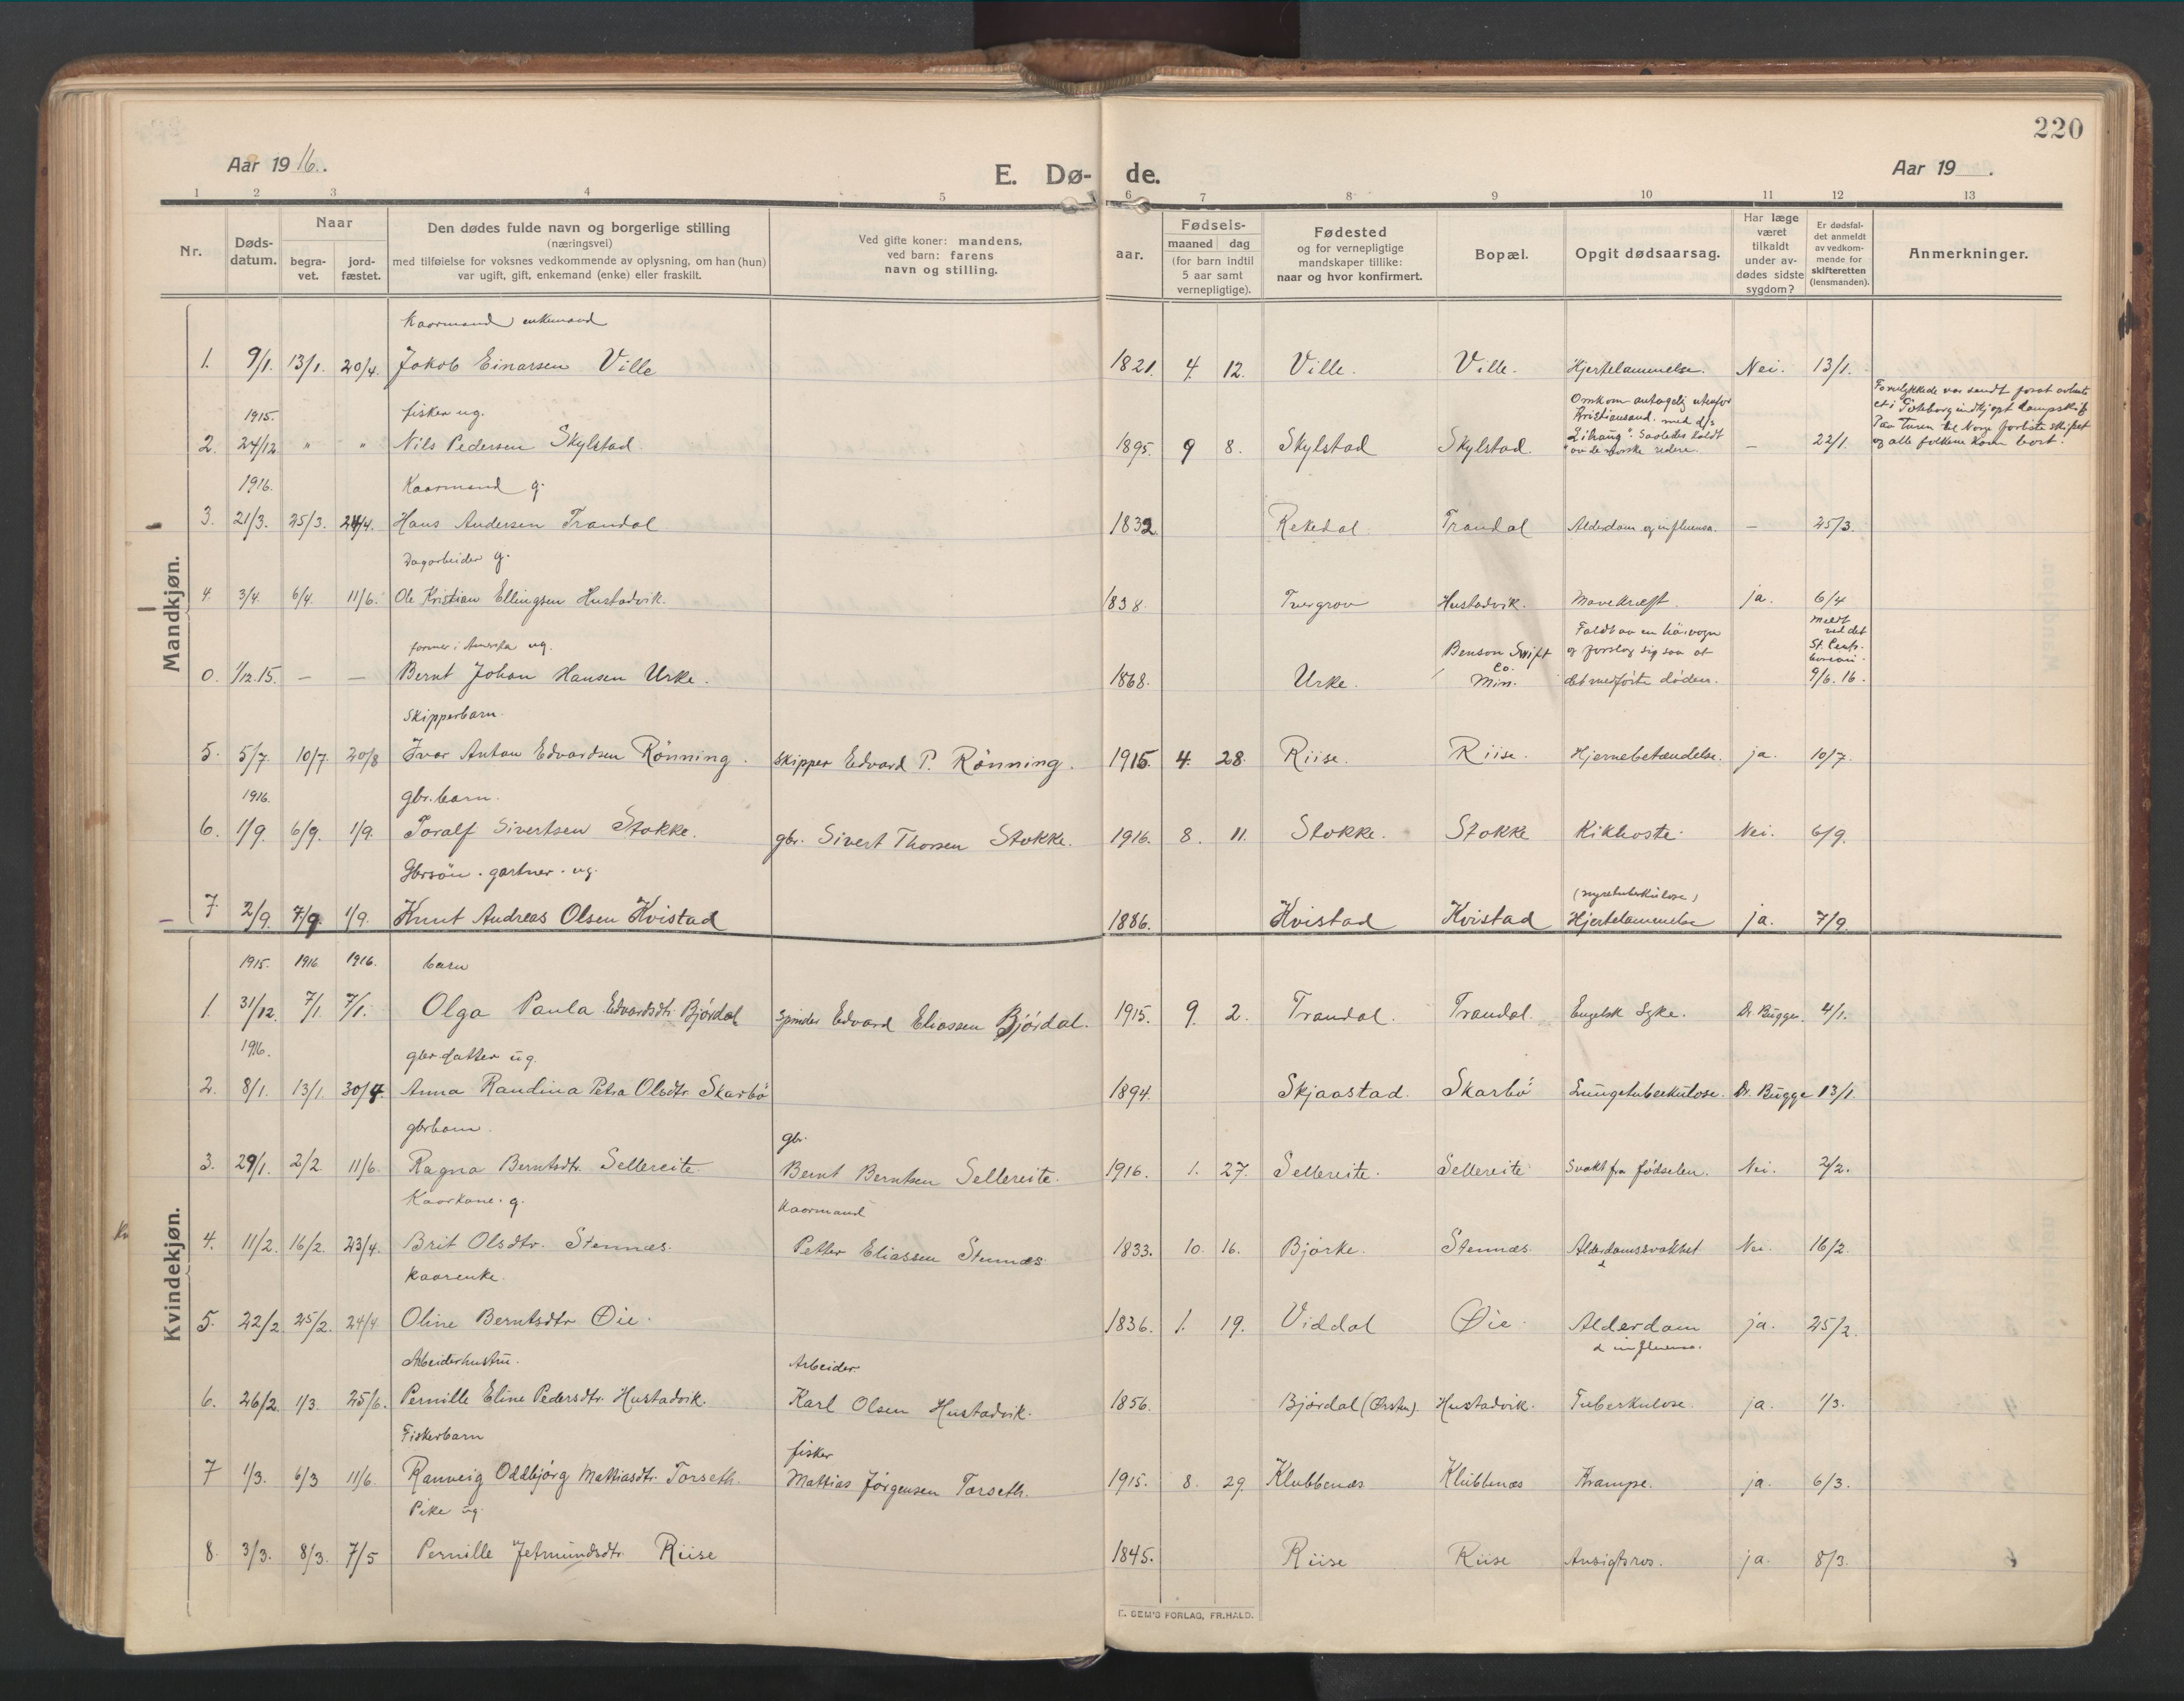 220
Aar 1916.
E. Dø- de.
Aar 19 .
1 2 3 4 5 6 7 8 9 10 11 12 13
Nr.
Døds-
datum.
Naar
begra-
vet.
jord-
fæstet.
Den dødes fulde navn og borgerlige stilling
(næringsvei)
med tilføielse for voksnes vedkommende av oplysning, om han (hun)
var ugift, gift, enkemand (enke) eller fraskilt.
Ved gifte koner: mandens,
ved barn: farens
navn og stilling.
Fødsels-
aar.
maaned dag
(for barn indtil
5 aar samt
vernepligtige).
Fødested
og for vernepligtige
mandskaper tillike:
naar og hvor konfirmert.
Bopæl.
Opgit dødsaarsag.
Har læge
været
tilkaldt
under av-
dødes sidste
sygdom?
Er dødsfal-
det anmeldt
av vedkom-
mende for
skifteretten
(lensmanden).
Anmerkninger.
Mandkjøn.
Kaarmand enkemand
1. 9/1. 13/1. 20/4. Jakob Einarsen Ville 1821. 4. 12. Ville. Ville. Hjertelammelse. Nei. 13/1.
1915. fisker ug.
2. 24/12. " " Nils Pedersen Skylstad 1895. 9 8. Skylstad Skylstad. — 22/1.
Omkom antagelig utenfor
Kristiansand med d/s
av de norske redere.
Forulykkede var sendt
et i Göteborg indkjøpt dampskib
Paa turen til Norge forliste skibet
og alle folkene kom bort.
1916. Kaarmand g.
3. 21/3. 25/3. 24/4. Hans Andersen Trandal 1832. Rekedal. Trandal Alderdom og influensa. — 25/3.
Dagarbeider g.
4. 3/4. 6/4. 11/6. Ole Kristian Ellingsen Hustadvik. 1838. Tvergrov Hustadvik. Mavekræft. ja. 6/4
farmer i Amerika ug.
0. 1/12.15. — — Bernt Johan Hansen Urke. 1868. Urke.
Benson Swift
Co.
Min.
Faldt av en høivogn
og forslog sig saa at
det medførte døden.
Meldt
ved det
St. Cent-
9/6. 16.
Skipperbarn.
5. 5/7. 10/7. 20/8 Ivar Anton Edvardsen Rönning. Skipper Edvard P. Rönning. 1915. 4. 28. Riise. Riise. Hjernebetændelse. ja. 10/7.
1916. gbr. barn.
6. 1/9. 6/9. 1/9. Toralf Sivertsen Stokke. gbr. Sivert Thorsen Stokke. 1916. 8. 11. Stokke. Stokke Kikhoste. Nei. 6/9.
Gbrsön. gartner. ug.
7 2/9. 7/9 1/9. Knut Andreas Olsen Kvistad 1886. Kvistad Kvistad (nyretuberkulose) Hjertelammelse ja. 7/9.
Kvindekjøn.
1915. 1916 1916. barn
1. 31/12. 7/1. 7/1. Olga Paula Edvardsdtr. Bjørdal Edvard Eliassen Björdal. 1915. 9. 2. Trandal. Trandal. Engelsk syke. Dr. Bugge. 4/1.
1916. gbr datter ug.
2. 8/1. 13/1. 30/4. Anna Randina Petra Olsdtr. Skarbö 1894. Skjaastad. Skarbö Lungetuberkulose. Dr. Bugge 13/1.
gbrbarn. gbr.
3. 29/1. 2/2 11/6. Ragna Berntsdtr. Sellereite Bernt Berntsen Sellereite. 1916. 1. 27. Sellereite. Sellereite Svakt fra fødselen. Nei. 2/2.
Kaarkone. g. Kaarmand
4. 11/2. 16/2. 23/4. Brit Olsdtr. Stennæs. Petter Eliassen Stennæs 1833. 10. 16. Bjørke. Stennæs. Alderdomssvakhet Nei. 16/2.
Kaarenke.
5. 22/2 25/2. 24/4 Oline Berntsdtr Øie. 1836. 1. 19. Viddal Øie. Alderdom
& influensa. ja. 25/2.
Arbeiderhustru. Arbeider
6. 26/2. 1/3. 25/6. Pernille Eline Pedersdtr. Hustadvik. Karl Olsen Hustadvik. 1856. Bjørdal (Ørsten). Hustadvik. Tuberkulose. ja. 1/3.
Fiskerbarn fisker
7 1/3. 6/3 11/6. Ranveig Oddbjørg Mattiasdtr. Torseth. Mattias Jörgensen Torseth. 1915. 8. 29. Klubbenæs Klubbenæs Krampe. ja. 6/3.
Pike ug.
8. 3/3. 8/3. 7/5 Pernille Jetmundsdtr. Riise 1845. Riise Riise Ansigtsros. ja. 8/3.
E. SEM'S FORLAG, FR.HALD.